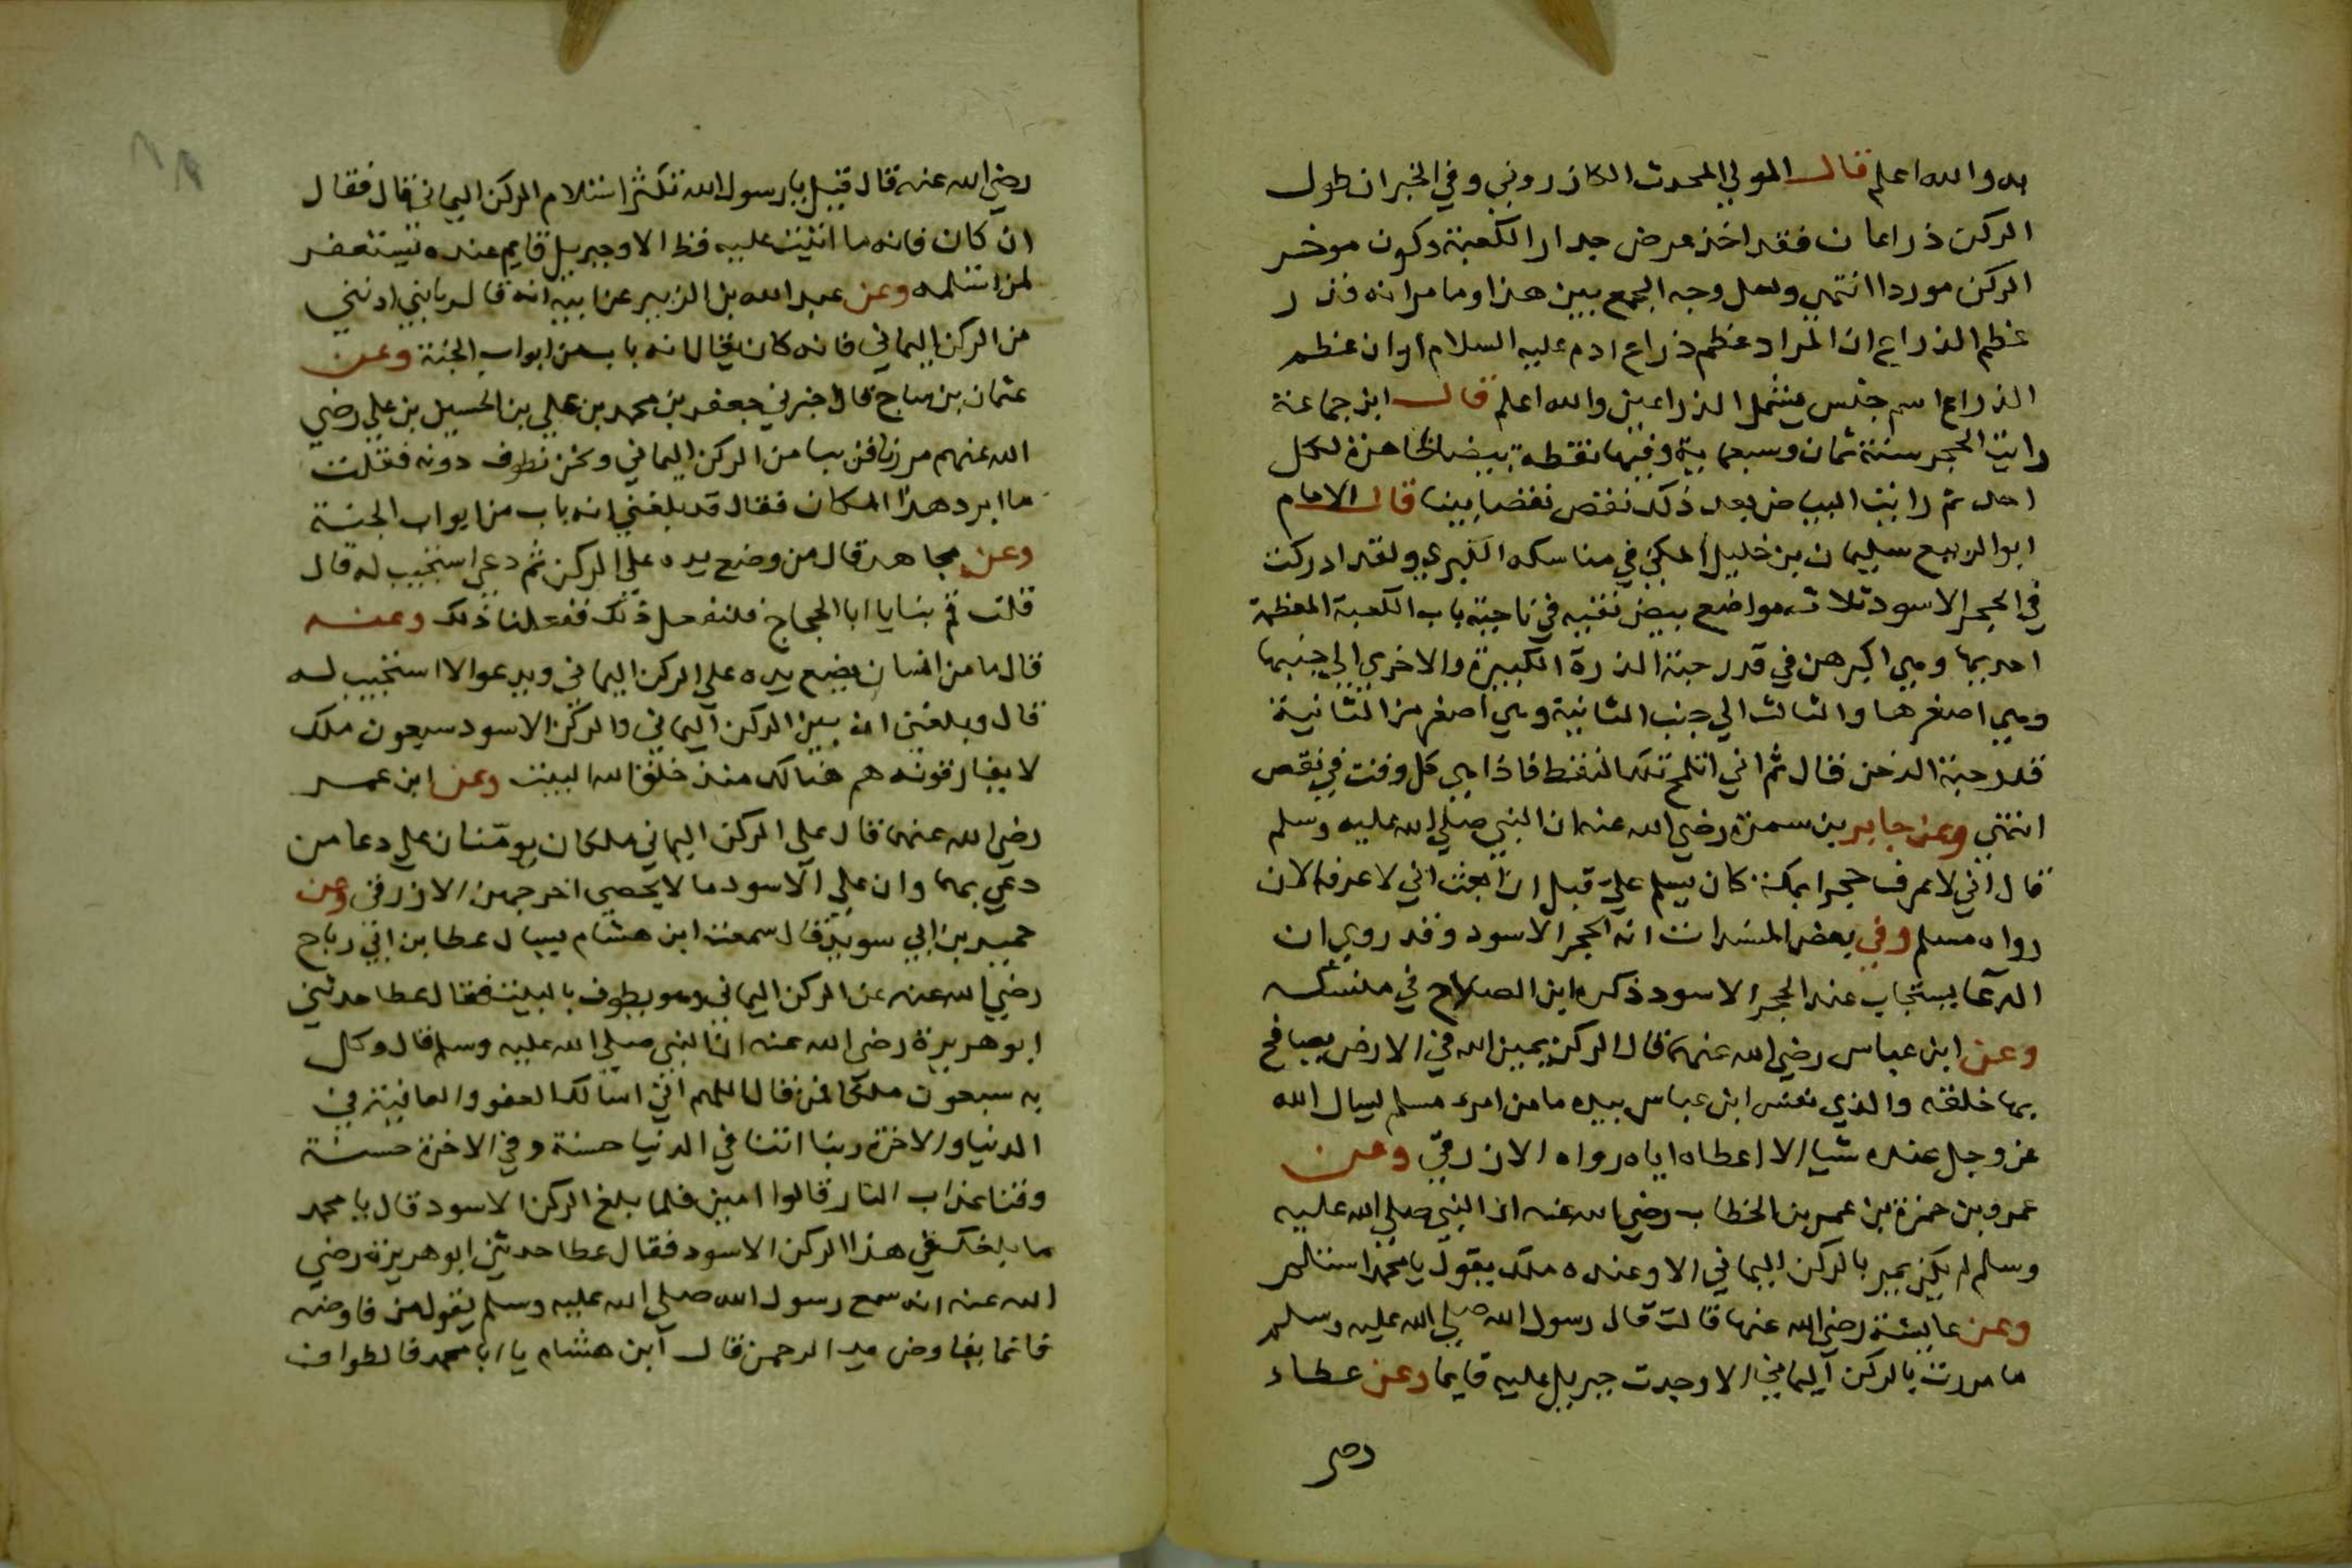 به والله اعلم قال المولي المحدث الكازروني وفي الخبر ان طول
الركن ذراعان فقد اخذ عرض جدار الكعبة وكون موخر
الركن موردا انتهي ولعل وجه الجمع بين هذا وما مر انه قدر
عظم الذراع ان المراد عظم ذراع ادم عليه السلام او ان عظم
الذراع اسم جنس يشمل الذراعين والله اعلم قال ابن جماعة
رايت الحجر سنة ثمان وسبعماية وفيها نقطة بيضا ظاهرة لكل
احد ثم رايت البياض بعد ذلك نقص نقصا بينا قال الامام
ابو الربيع سليمان بن خليل المكي في مناسكه الكبري ولقد ادركت
في الحجر الاسود ثلاثه مواضع بيض نقيه في ناحية باب الكعبة المعظمة
احديها وهي اكبرهن في قدر حبة الذرة الكبيرة والاخري الي جنبها
وهي اصغرها والثالث الي جنب الثانية وهي اصغر من الثانية
قدر حبة الدخن قال ثم اني اتلمح تلك النقط فاذا هي كل وقت في نقص
انتهي وعن جابر بن سمرة رضي الله عنه ان النبي صلي الله عليه وسلم
قال اني لاعرف حجرا بمكة كان يسلم علي قبل ان ابعث اني لاعرفه الان
رواه مسلم وفي بعض المسندات انه الحجر الاسود وقد روي ان
الدعا يستجاب عند الحجر الاسود ذكره ابن الصلاح في منسكه
وعن ابن عباس رضي الله عنهما قال الركن يمين الله في الارض يصافح
بها خلقه والذي نفس ابن عباس بيده ما من امرء مسلم ليسال الله
عز وجل عنده شيا الا اعطاه اياه رواه الازرقي وعن
عمرو بن حمزة بن عمر بن الخطاب رضي الله عنه ان النبي صلي الله عليه
وسلم لم يكن يمر بالركن اليماني الا وعنده ملك يقول يا محمد استلم
وعن عايشة رضي الله عنها قالت قال رسول الله صلي الله عليه وسلم
ما مررت بالركن اليماني الا وجدت جبريل عليه قايما وعن عطاء
رضي
رضي الله عنه قال قيل يا رسول الله تكثر استلام الركن اليماني قال فقال
ان كان فانه ما اتيت عليه قط الا وجبريل قايم عنده يستغفر
لمن استلمه وعن عبد الله بن الزبير عن ابيه انه قال يا بني ادنني
من الركن اليماني فانه كان يقال انه باب من ابواب الجنة وعن
عثمان بن ساج قال اخبرني جعفر بن محمد بن علي بن الحسين بن علي رضي
الله عنهم مررنا قريبا من الركن اليماني ونحن نطوف دونه فقلت
ما ابرد هذا المكان فقال قد بلغني انه باب من ابواب الجنة
وعن مجاهد قال من وضع يده علي الركن ثم دعي استجيب له قال
قلت قم بنا يا ابا الحجاج فلنفعل ذلك ففعلنا ذلك وعنه
قال ما من انسان يضع يده علي الركن اليماني ويدعوا الا استجيب له
قال وبلغني ان بين الركن اليماني والركن الاسود سبعون ملك
لا يفارقونه هم هنالك منذ خلق الله البيت وعن ابن عمر
رضي الله عنهما قال علي الركن اليماني ملكان يومنان علي دعا من
دعي بهما وان علي الاسود ما لا يحصي اخرجهن الازرقي وعن
حميد بن ابي سويد قال سمعت ابن هشام يسال عطا بن ابي رباح
رضي الله عنه عن الركن اليماني وهو يطوف بالبيت فقال عطا حدثني
ابو هريرة رضي الله عنه ان النبي صلي الله عليه وسلم قال وكل
به سبعون ملكا فمن قال اللهم اني اسالك العفو والعافية في
الدنيا والاخرة ربنا اتنا في الدنيا حسنة وفي الاخرة حسنة
وقنا عذاب النار قالوا امين فلما بلغ الركن الاسود قال يا محمد
ما بلغك في هذا الركن الاسود فقال عطا حدثني ابو هريرة رضي
الله عنه انه سمع رسول الله صلي الله عليه وسلم يقول من فاوضه
فانما يفاوض يد الرحمن قال ابن هشام يا ابا محمد فالطواف